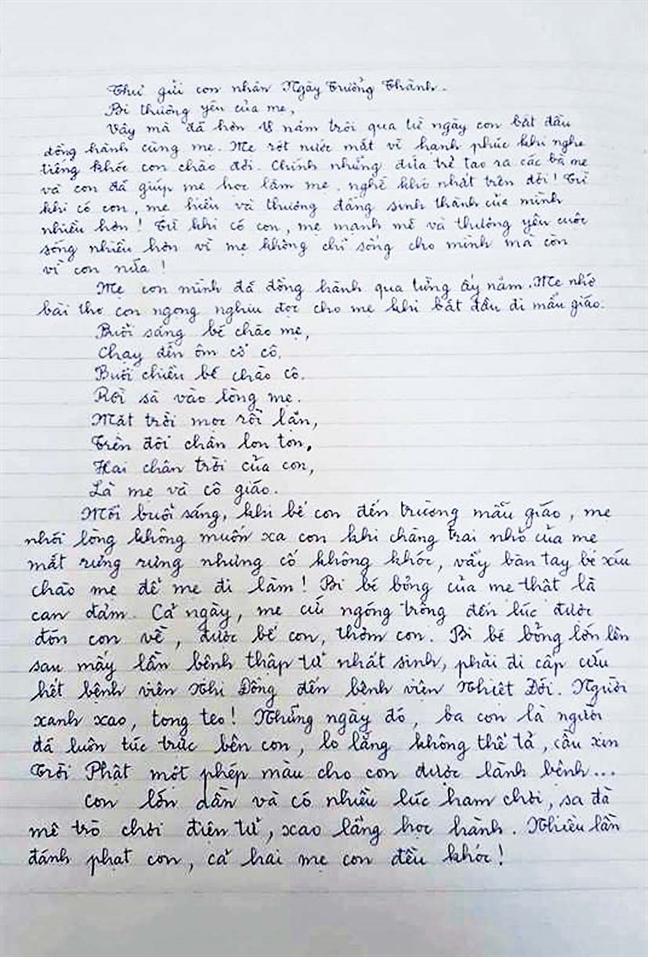 Thư gửi con nhân Ngày Trưởng Thành.
Bi thương yêu của mẹ,
Vậy mà đã hơn 18 năm trời qua từ ngày con bắt đầu
đồng hành cùng mẹ. Mẹ rớt nước mắt vì hạnh phúc khi nghe
tiếng khóc con chào đời. Chính những đứa trẻ tạo ra các bà mẹ
và con đã giúp mẹ học làm mẹ, nghề khó nhất trên đời! Từ
khi có con, mẹ hiểu và thương đấng sinh thành của mình
nhiều hơn! Từ khi có con, mẹ mạnh mẽ và thương yêu cuộc
sống nhiều hơn vì mẹ không chỉ sống cho mình mà còn
vì con nữa!
Mẹ con mình đã đồng hành qua từng ấy năm. Mẹ nhớ
bài thơ con ngọng nghịu đọc cho mẹ khi bắt đầu đi mẫu giáo:
Buổi sáng bé chào mẹ,
Chạy đến ôm cổ cô,
Buổi chiều bé chào cô.
Rồi sà vào lòng mẹ.
Mặt trời mọc rồi lặn,
Trên đôi chân lon ton,
Hai chân trời của con,
Là mẹ và cô giáo.
Mỗi buổi sáng, khi bế con đến trường mẫu giáo, mẹ
nhói lòng không muốn xa con khi chàng trai nhỏ của mẹ
mắt rưng rưng nhưng cố không khóc, vẫy bàn tay bé xíu
chào mẹ để mẹ đi làm! Bi bé bỏng của mẹ thật là
can đảm. Cả ngày, mẹ cứ ngóng trông đến lúc được
đón con về, được bế con, thơm con. Bi bé bỏng lớn lên
sau mấy lần bệnh thập tử nhất sinh, phải đi cấp cứu
hết bệnh viện Nhi Đồng đến bệnh viện Nhiệt Đới. Người
xanh xao, tong teo! Những ngày đó, ba con là người
đã luôn túc trực bên con, lo lắng không thể tả, cầu xin
Trời Phật một phép màu cho con được lành bệnh...
Con lớn dần và có nhiều lúc ham chơi, sa đà
mê trò chơi điện tử, xao lãng học hành. Nhiều lần
đánh phạt con, cả hai mẹ con đều khóc!